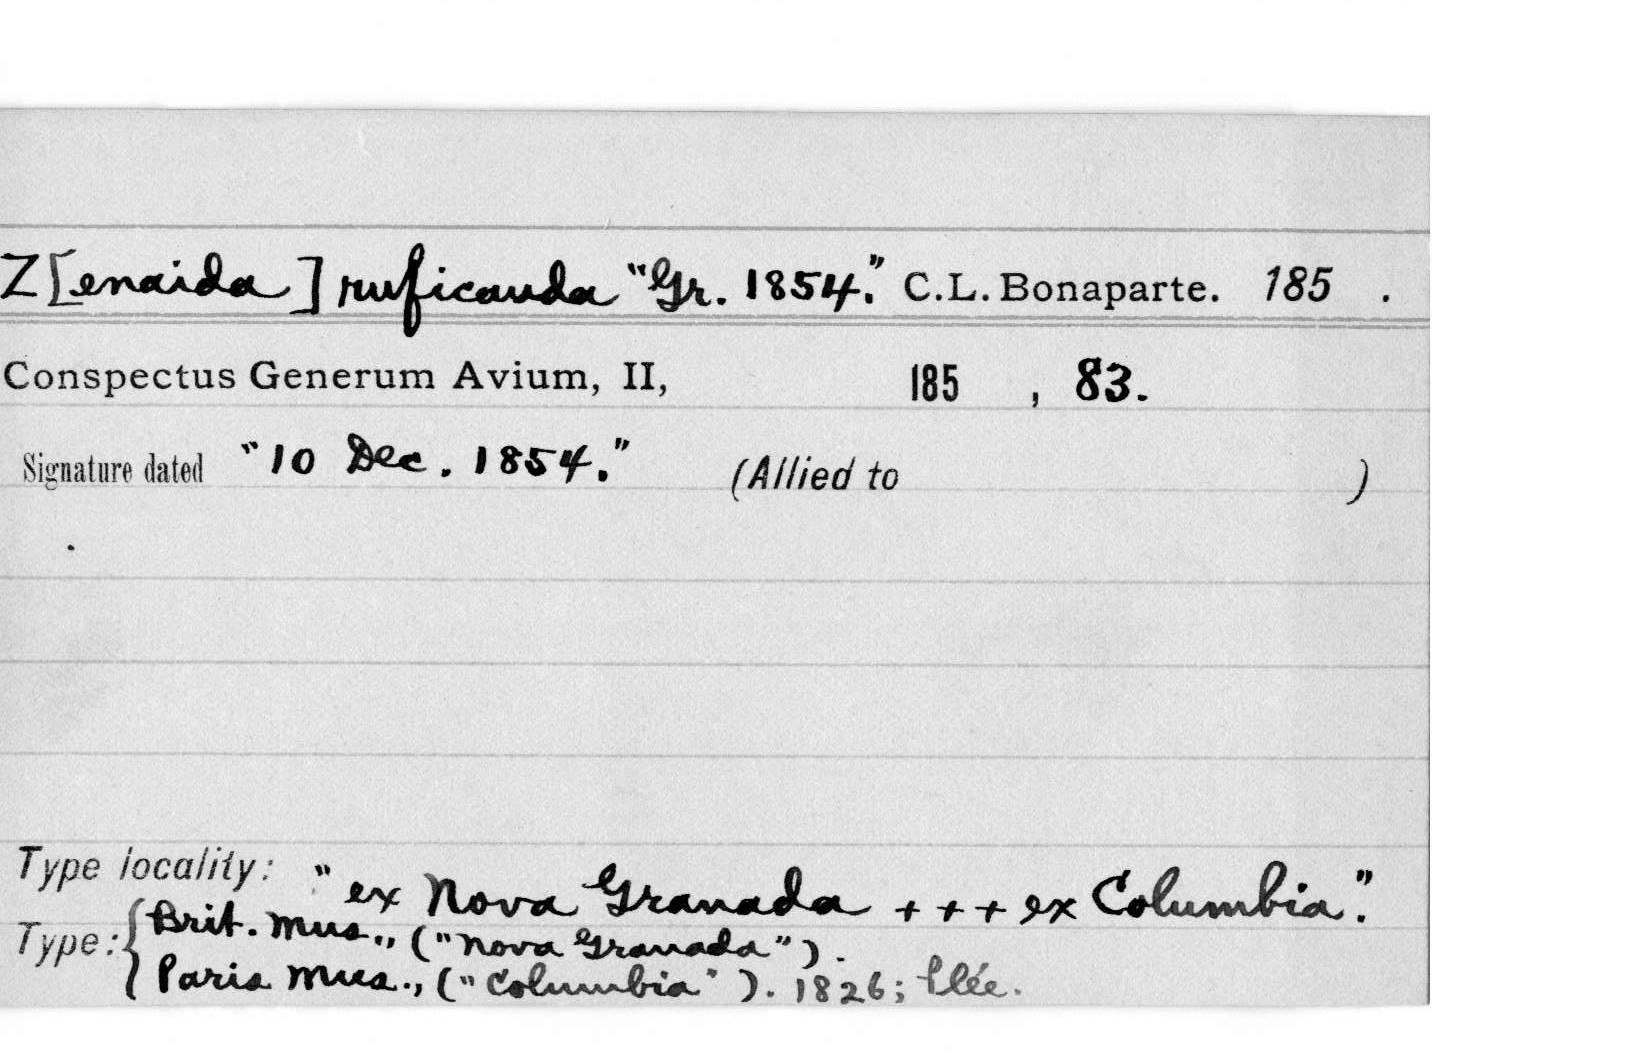 Z[enaida] ruficauda "Gr. 1854." C.L. Bonaparte. 185 .
Conspectus Generum Avium, II, 185 , 83.
Signature dated "10 Dec. 1854." (Allied to )
Type locality: "ex Nova Granada + + + ex Columbia."
Type: { Brit. Mus., ("Nova Granada").
Paris Mus., ("Columbia"). 1826; Plée.